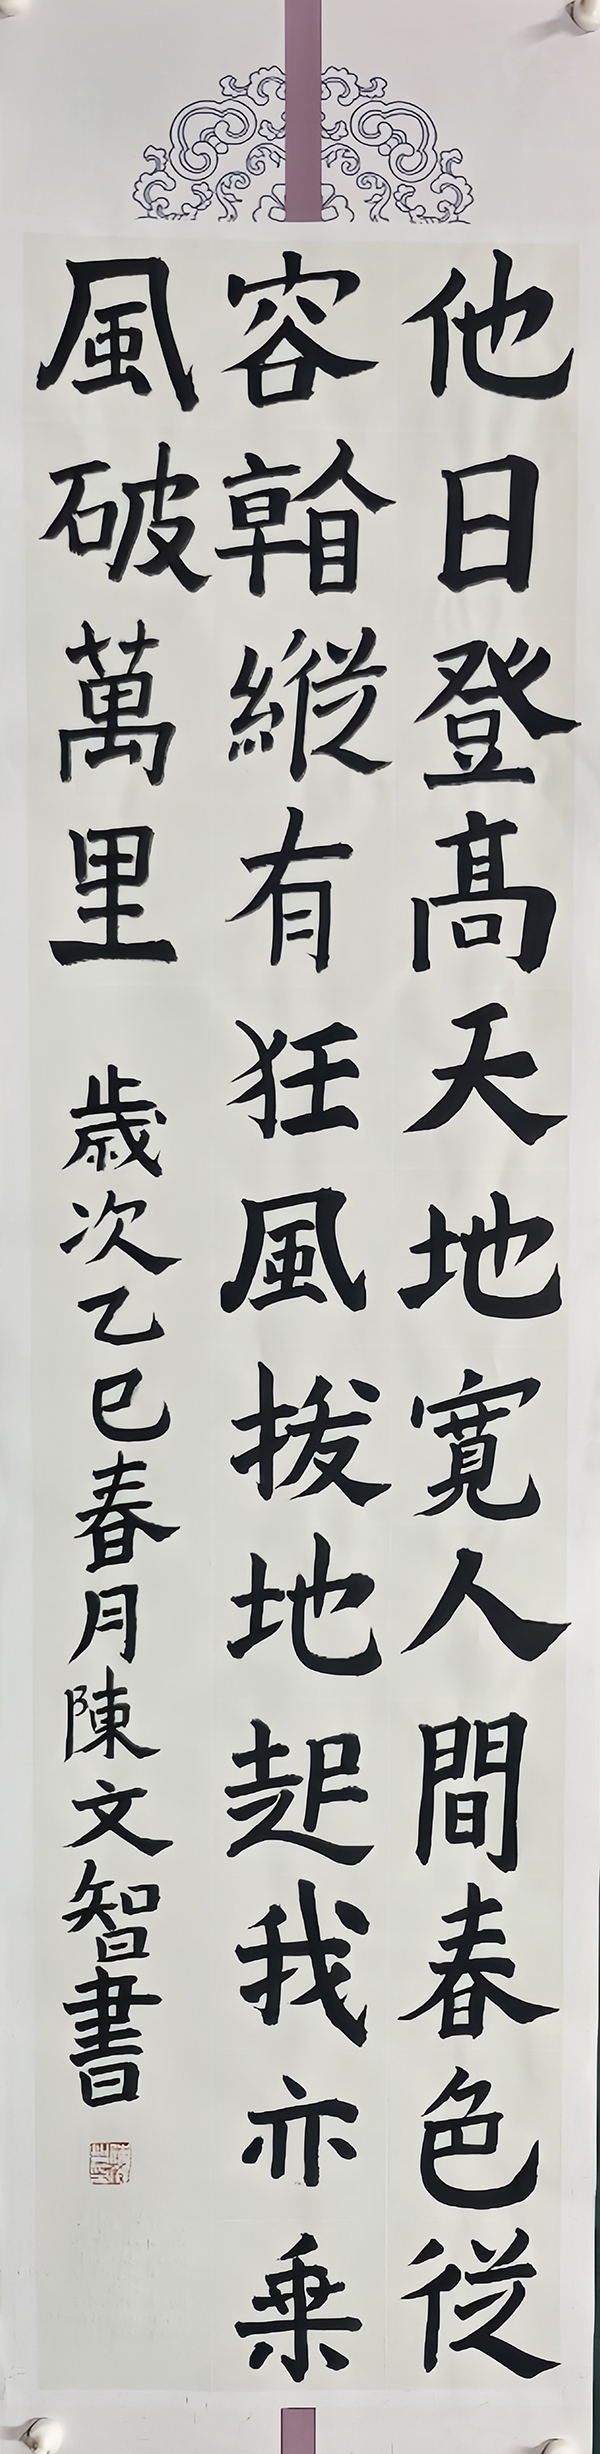 他日登髙天地寬人間春色従
容縦有狂風拔地起我亦乗
風破萬里 歲次乙巳春月陳文智書